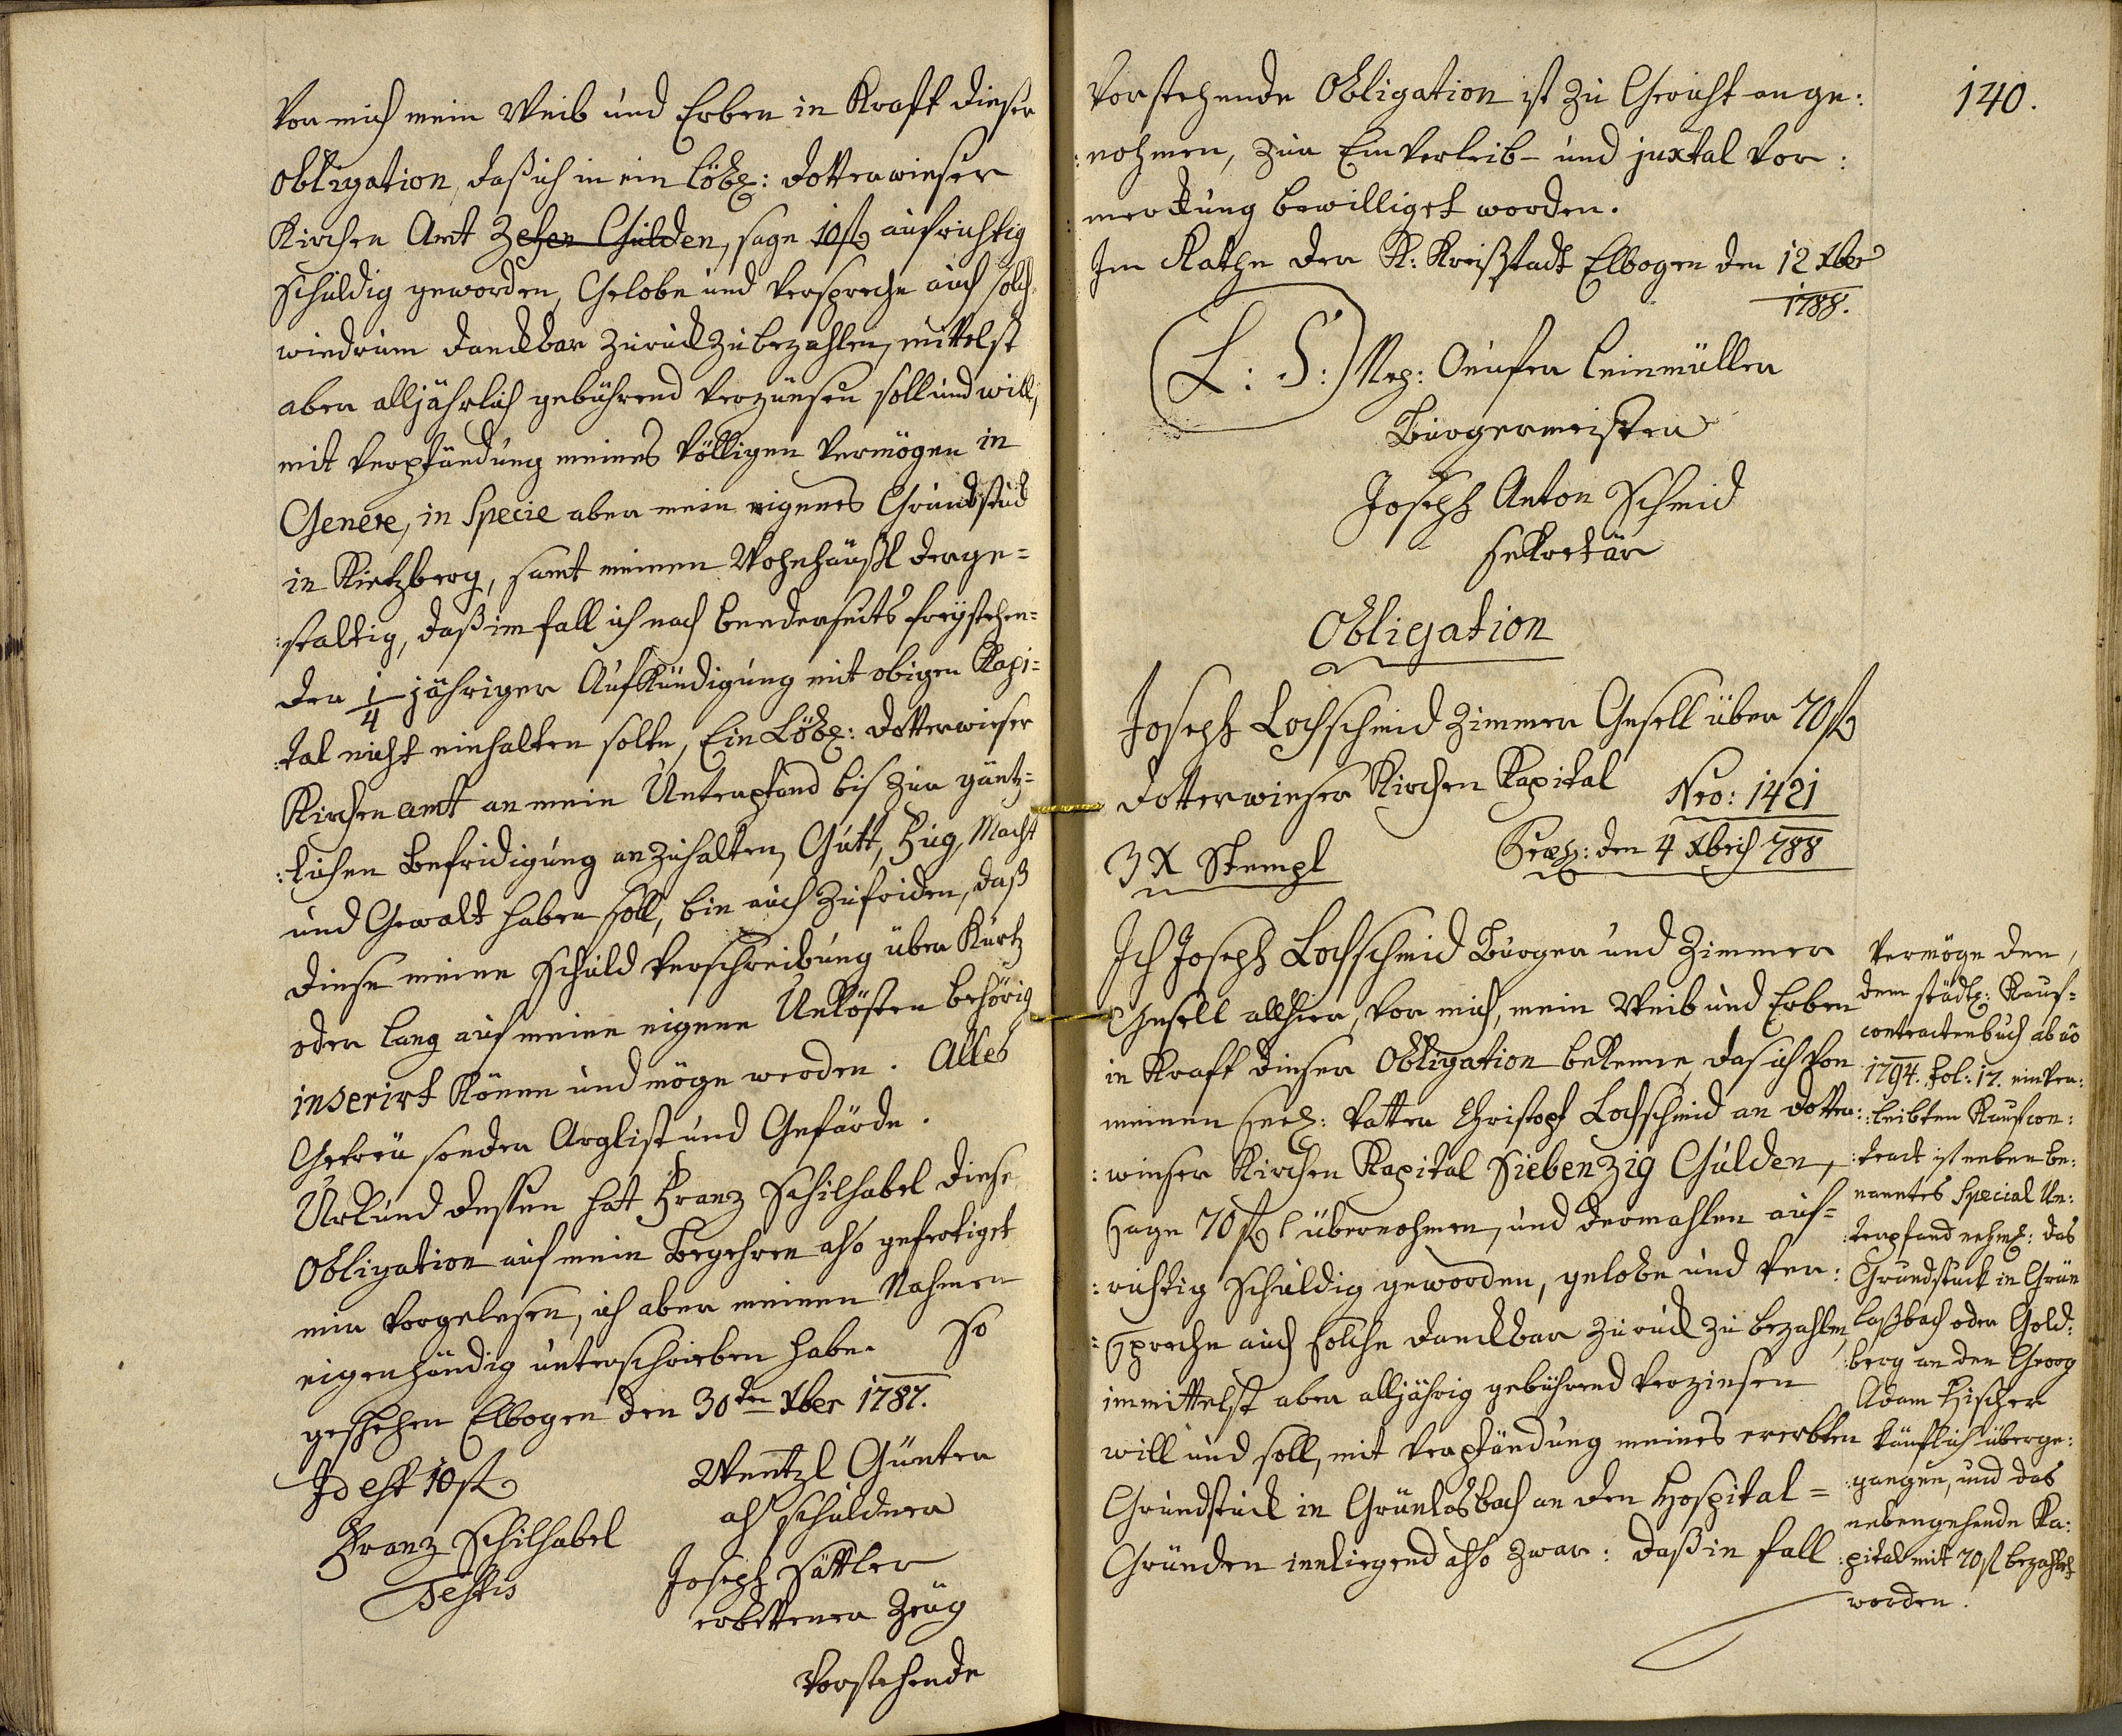 Vor mich mein Weib und Erben in Kraft dieser
Obligation, daß ich in ein löbl: Dotterwieser
Kirchen Amt Zehen Gulden, sage 10 fl aufrichtig
schuldig geworden, Gelobe und verspreche auch solch
wiedrum danckbar zuruck zu bezahlen, mittelst
aber alljährlich gebührend verzünsen soll und will,
mit Verpfändung meines völligen Vermögen in
Genere, in Specie aber mein eigenes Grundstuck
in Kietzberg, samt meinen Wohnhäußl derge=
:staltig, daß im fall ich nach beederseits freystehen=
der 1/4 jähriger Aufkündigung mit obigen Kapi=
:tal nicht einhalten solte, Ein Löbl: Dotterwieser
Kirchen amt an mein Unterpfand bis zur gäntz=
:lichen Befridigung anzuhalten, Gutt, Fug, Macht
und Gewalt haben soll, bin auch zufriden, daß
diese meine Schuld Verschreibung über Kurtz
oder lang auf meine eigene Unkösten behörig
inserirt könne und möge werden. Alles
Getreu sonder Arglist und Gefärde.
Urkund dessen hat Franz Schilhabel diese
Obligation auf mein Begehren also gefertiget
mir vorgelesen, ich aber meinen Nahmen
eigenhändig unterschrieben habe. So
geschehen Elbogen den 30ten Xber 1787.
Id est 10 fl
Wentzl Günter
als schuldner
Franz Schilhabel
Testis
Joseph Sattler
erbettener Zeug
Vorstehende
140.
Vorstehende Obligation ist zu Gericht ange:
:nohmen, zur Einverleib- und juxtal Vor:
merckung bewilliget worden.
Im Rathe der K: Kreißstadt Elbogen den 12 Xber
1788.
L: S: Nep: Leinmüller
Burgermeister
Joseph Anton Schmid
Sekretär
Obligation
Joseph Lochschmid Zimmer Gesell über 70 fl
Dotterwieser Kirchen Kapital
Nro: 1421
3 X Stempl
Præs: den 4 Xbris 788
Ich Joseph Lochschmid Burger und Zimmer
Gesell allhier, vor mich, mein Weib und Erben
in Kraft dieser Obligation bekenne, das ich von
meinen seel: Vatter Christoph Lochschmid an Dotter:
:wieser Kirchen Kapital Siebenzig Gulden,
sage 70 fl übernohmen, und dermahlen auf=
:richtig schuldig geworden, gelobe und ver:
:spreche auch solche danckbar zuruck zu bezahlen
immittelst aber alljährig gebührend verzinsen
will und soll, mit Verpfändung meines ererbten
Grundstuck in Grünlasbach an den Hospital=
Gründen innliegend also zwar: daß in fall
Vermöge den,
dem städtl: Kauf=
contractenbuch ab ao
1794. fol: 17. einver:
:leibten Kaufcon:
:tract ist neben be:
nanntes Special Un:
:terpfand nehml: das
Grundstuck in Grün
laßbach oder Gold:
:berg an den Georg
Adam Fischer
käuflich überge:
:gangen, und das
nebengehende Ka:
:pital mit 70 fl bezahlet
worden.